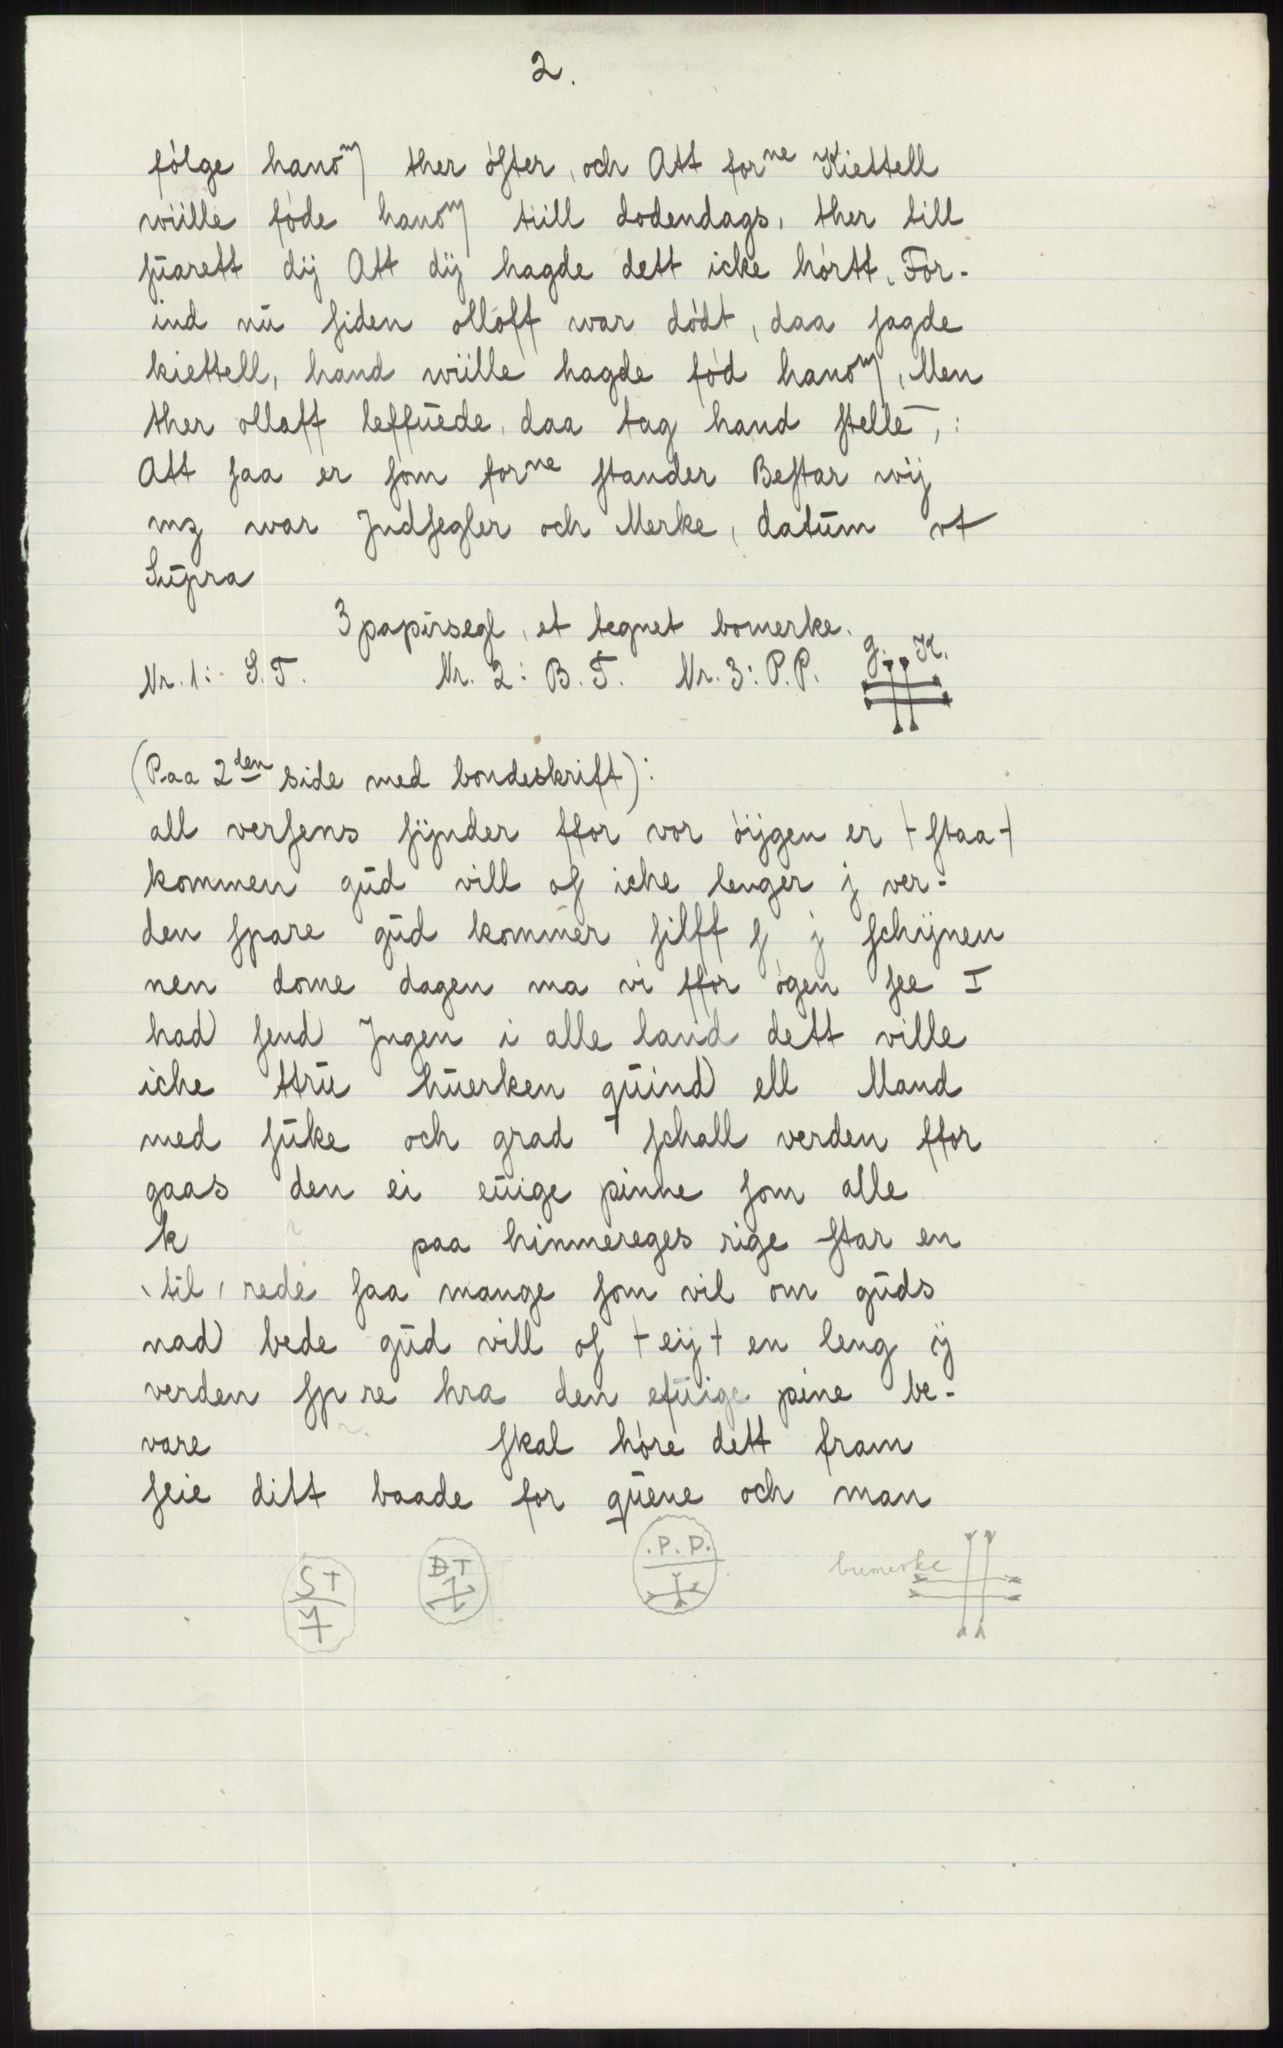 2.
følge hanom ther öfter, och Att forne Kiettell
wiille føde hanom tiill dodendags, ther till
suarett dÿ Att dÿ hagde dett icke hørtt. For-
ind nu siden olloff war dødt, daa sagde
kiettell, hand wiille hagde fød hanom, Men
ther ollaff leffuede, daa tag hand stelle,:
Att saa er som forne stander Bestar wÿ
mz war Jndsegler och Merke, datum vt
Supra
3 papirsegl, et tegnet bomerke.
Nr. 1: S.T. Nr. 2: B.T. Nr. 3: P.P. g. K.
(Paa 2den side med bondeskrift):
all versens sÿnder ffor vor öÿgen er + staa +
kommen gud vill os iche lenger j ver-
den spare gud kommer silff s j schÿnen
nen dome dagen ma vi ffor ögen see I
had send Jngen i alle land dett ville
iche ttru huerken quind ell Mand
med suke och grad schall verden ffor
gaas den ei euige pinne som alle
k paa himmereges rige star en
til rede saa mange som vil om guds
nad bede gud vill os + eij + en leng ÿ
verden sp re hra den efuige pine be-
vare skal høre dett fram
seie ditt baade for quene och man
ST BT .P.P. bumerke